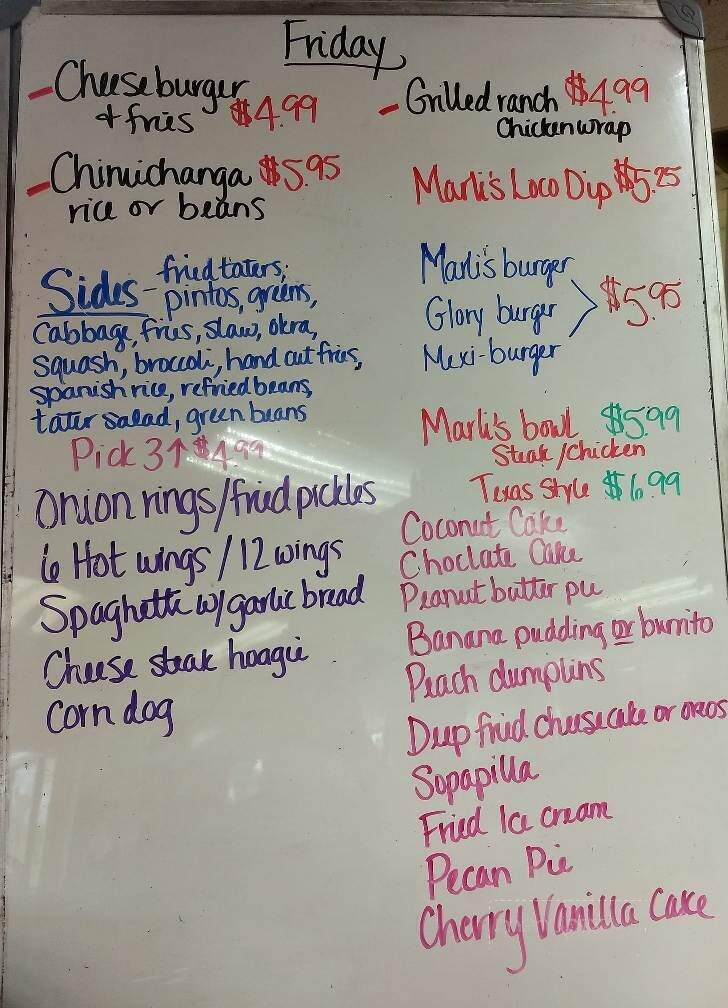 Friday
- Cheeseburger
+ fries $4.99
- Chimichanga $5.95
rice or beans
Sides - fried taters,
pintos, greens,
Cabbage, fries, slaw, okra,
squash, broccoli, hand cut fries,
spanish rice, refried beans,
tater salad, green beans
Pick 3↑ $4.99
Onion rings/fried pickles
6 Hot wings / 12 wings
Spaghetti w/ garlic bread
Cheese steak hoagie
Corn dog
- Grilled ranch $4.99
Chicken wrap
Marli's Loco Dip $5.25
Marli's burger
Glory burger $5.95
Mexi-burger
Marli's bowl $5.99
Steak/Chicken
Texas Style $6.99
Coconut Cake
Choclate Cake
Peanut butter pie
Banana pudding or burrito
Peach dumplins
Deep fried cheesecake or oreos
Sopapilla
Fried Ice cream
Pecan Pie
Cherry Vanilla Cake